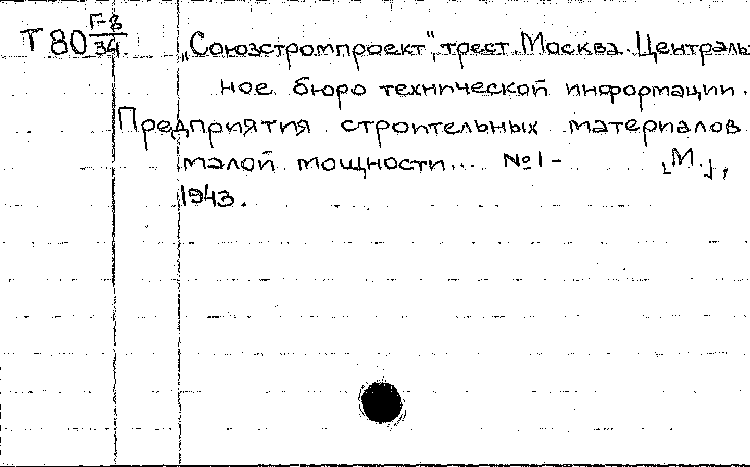 Т 80 Г-8/34
„Союзстромпроект", трест. Москва. Централь-
ное бюро технической информации.
Предприятия строительных материалов
малой мощности... №1- [М.],
1943.